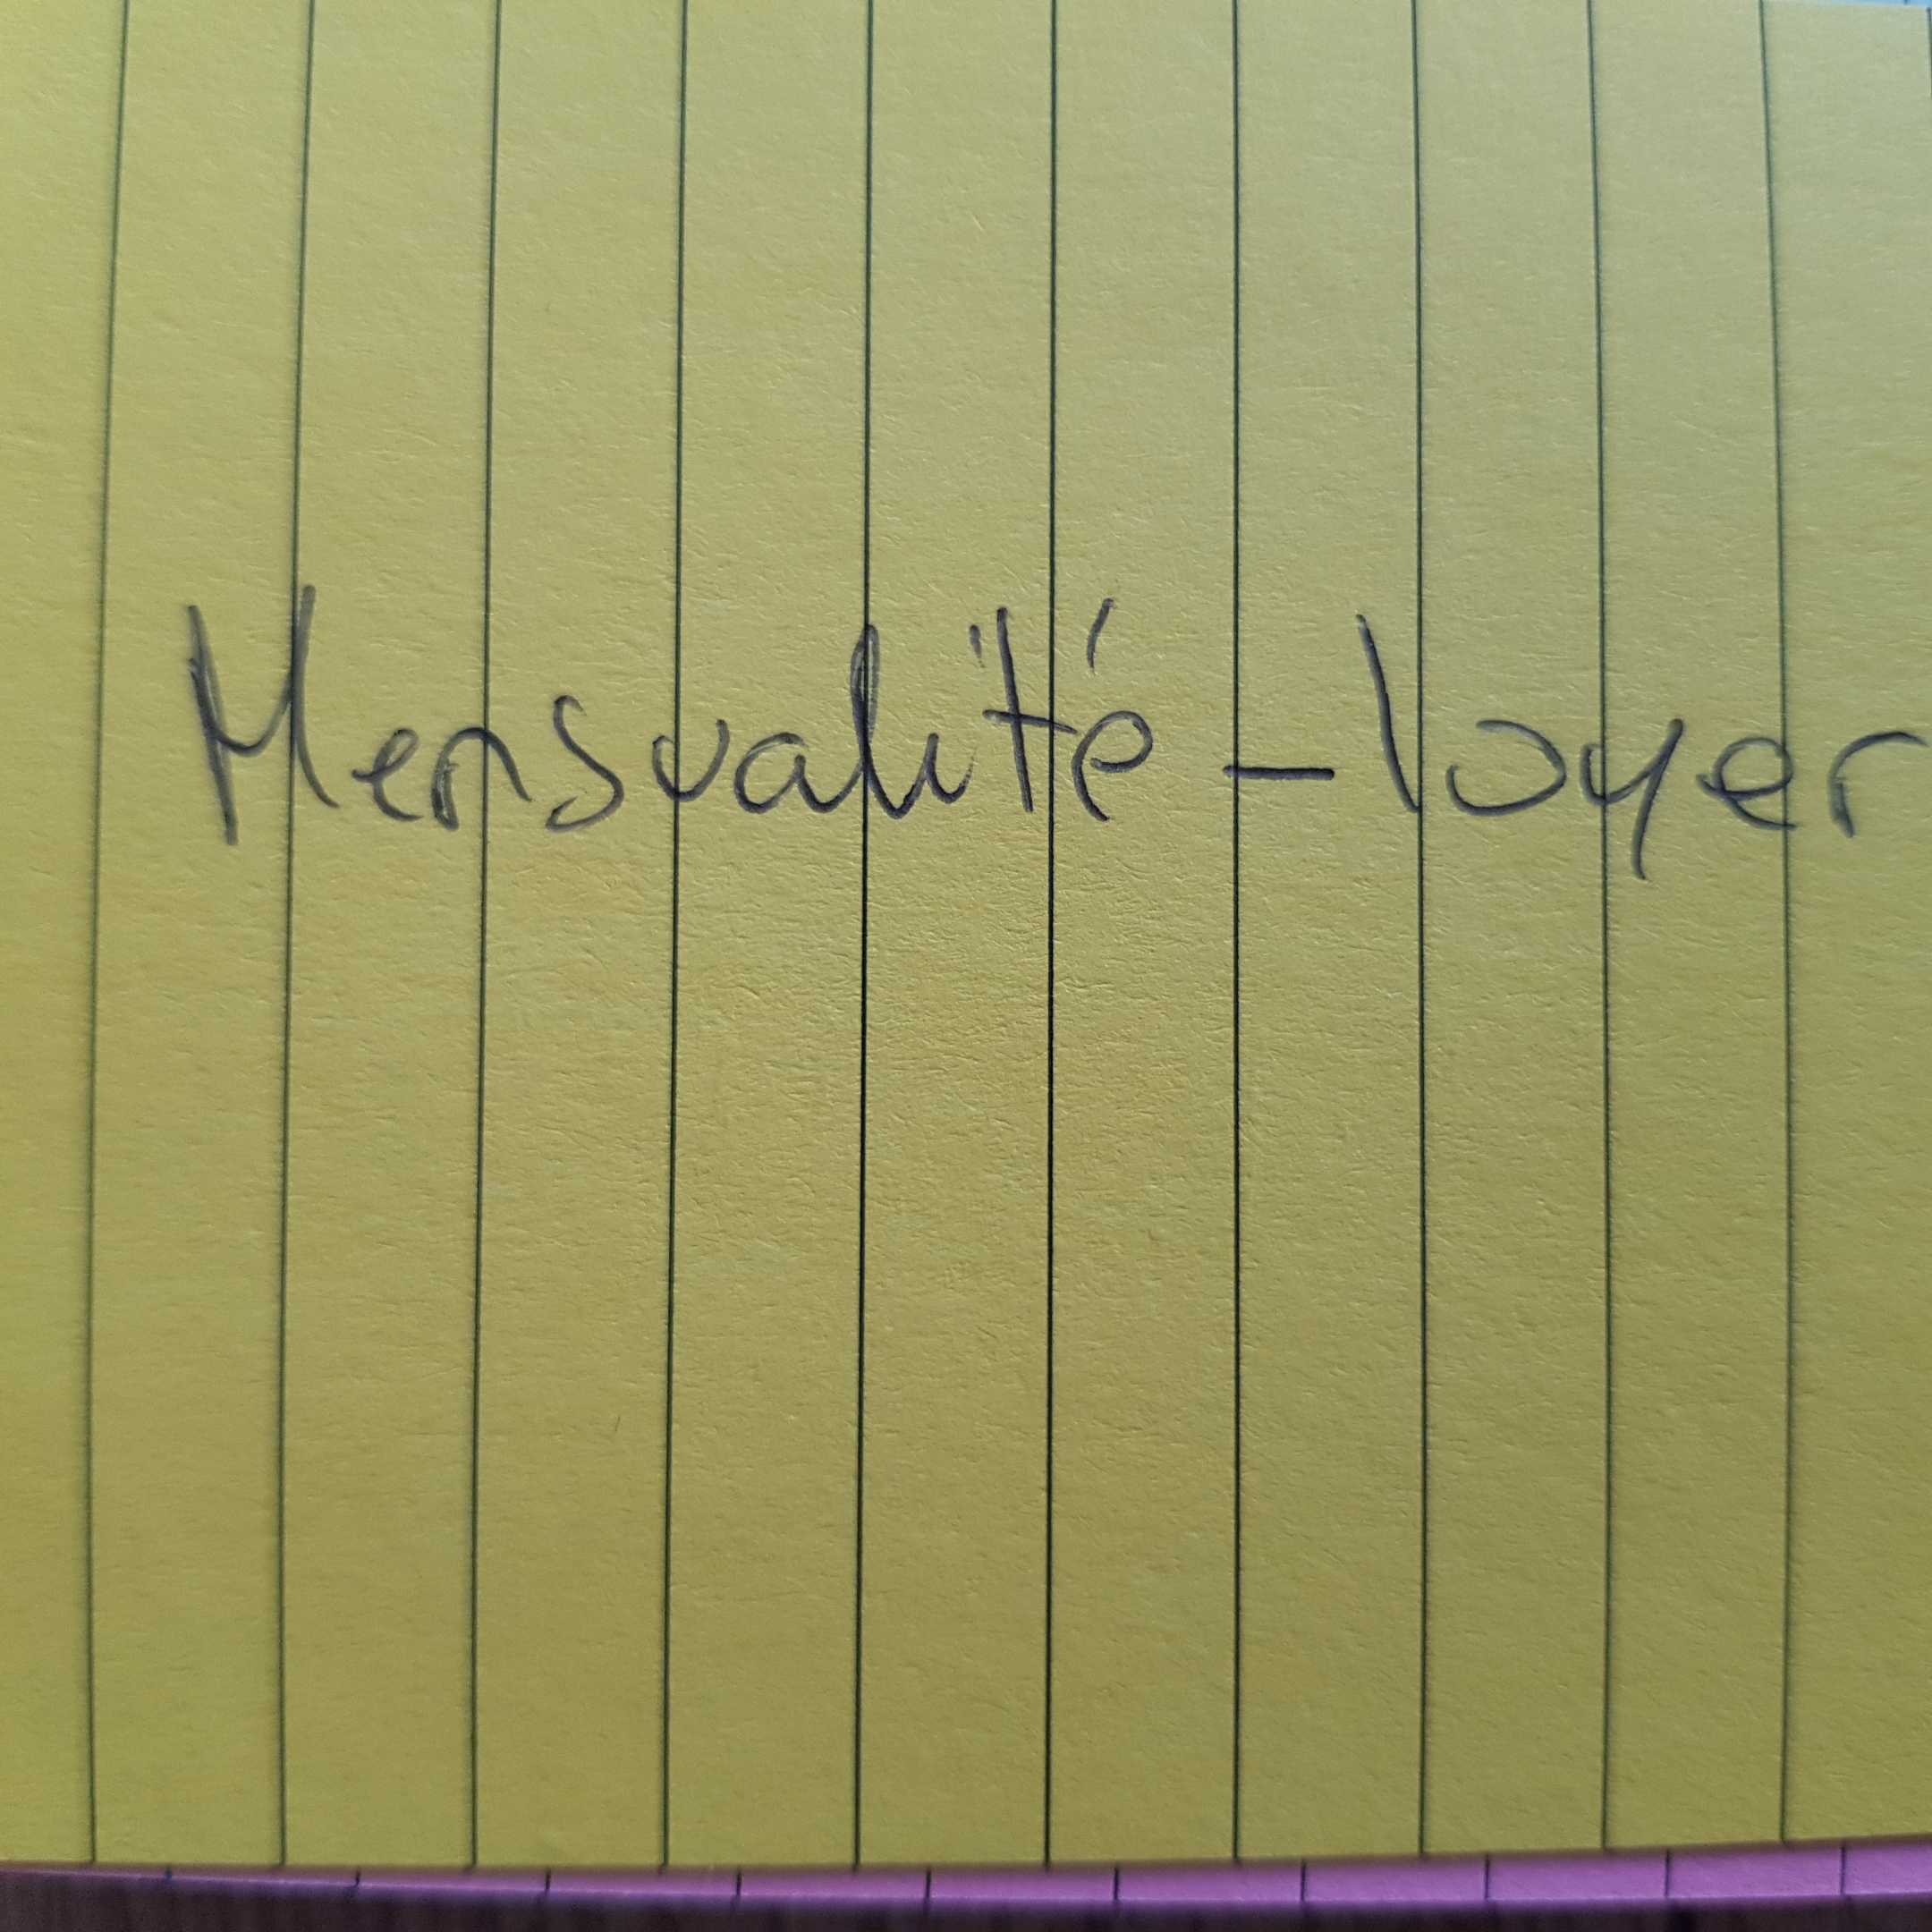 Mensualité - loyer